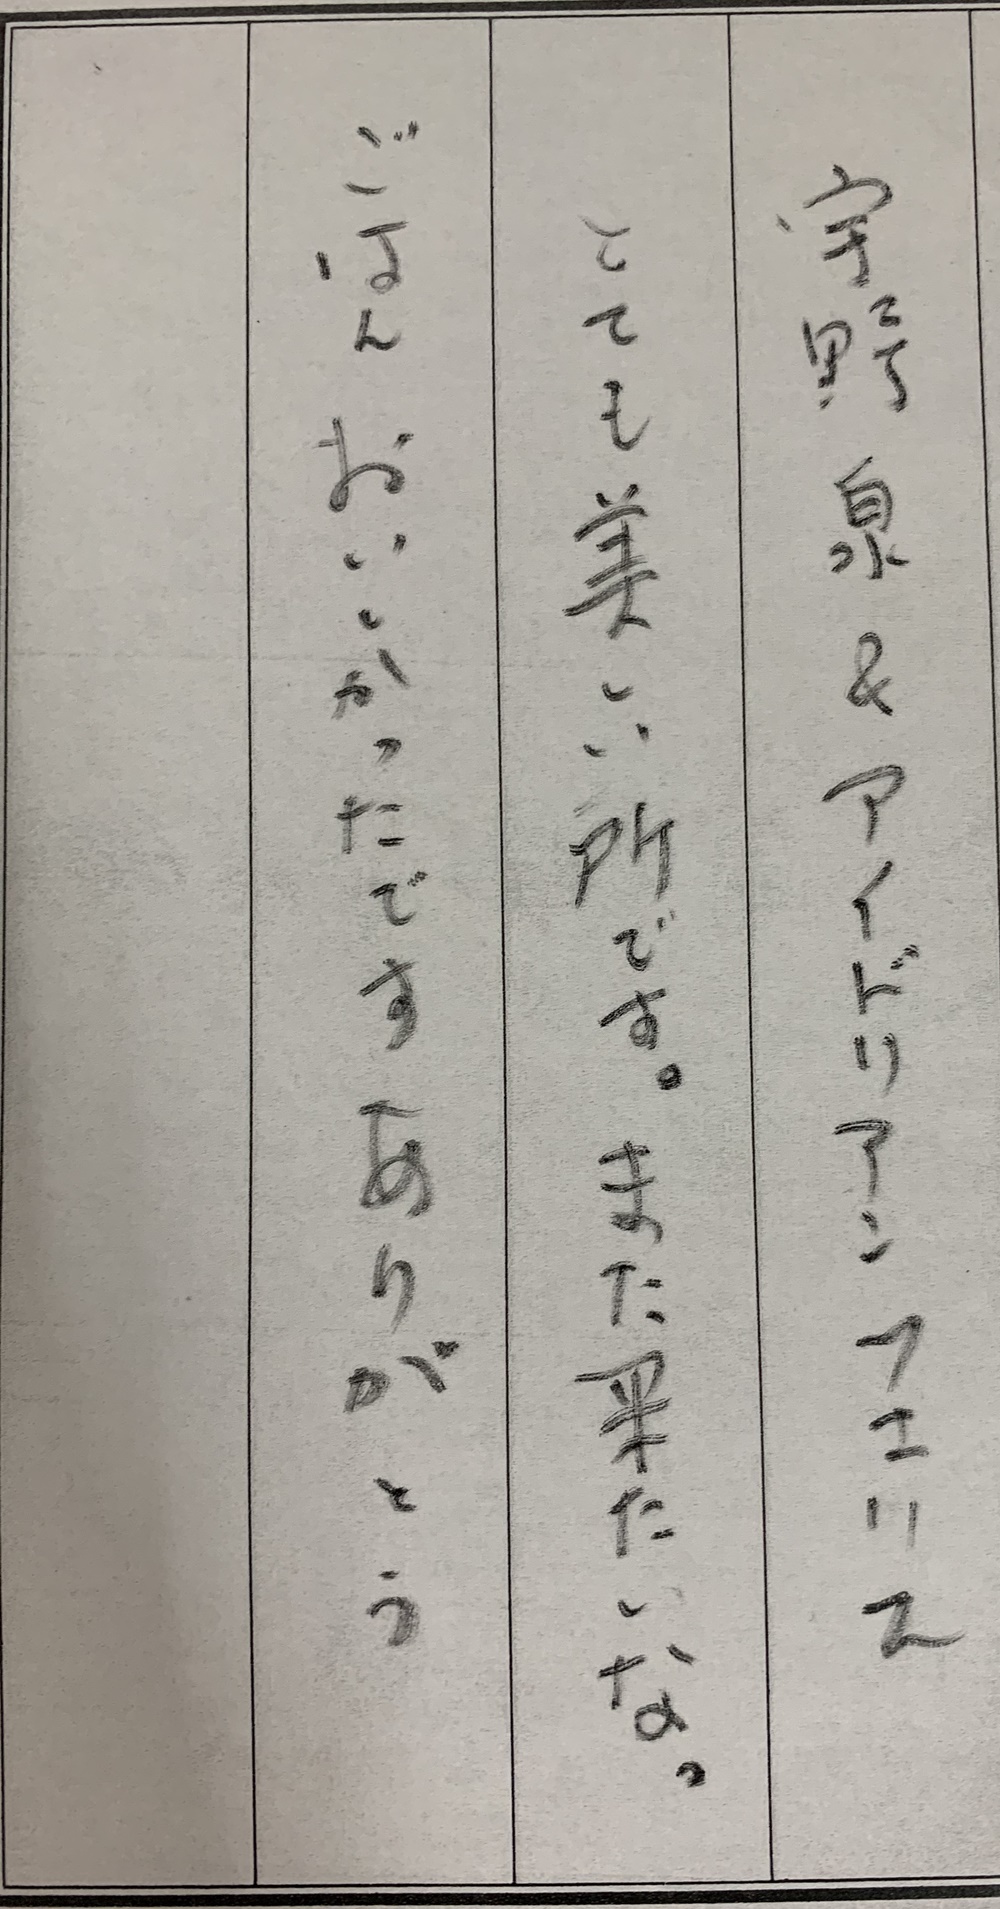 宇野 泉 & アイドリアン フェリス
とても美しい所です。また来たいな。
ごはん おいしかったです ありがとう